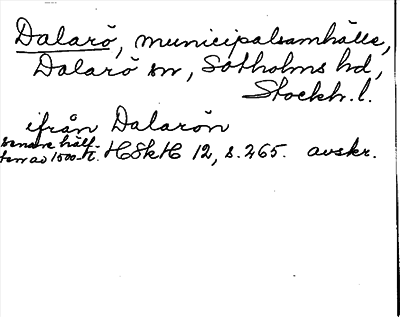 Dalarö, municipalsamhälle,
Dalarö sn, Sotholms hd,
Stockh. l.
ifrån Dalarön
senare hälf-
ten av 1500-t. HSkH 12, s. 265. avskr.